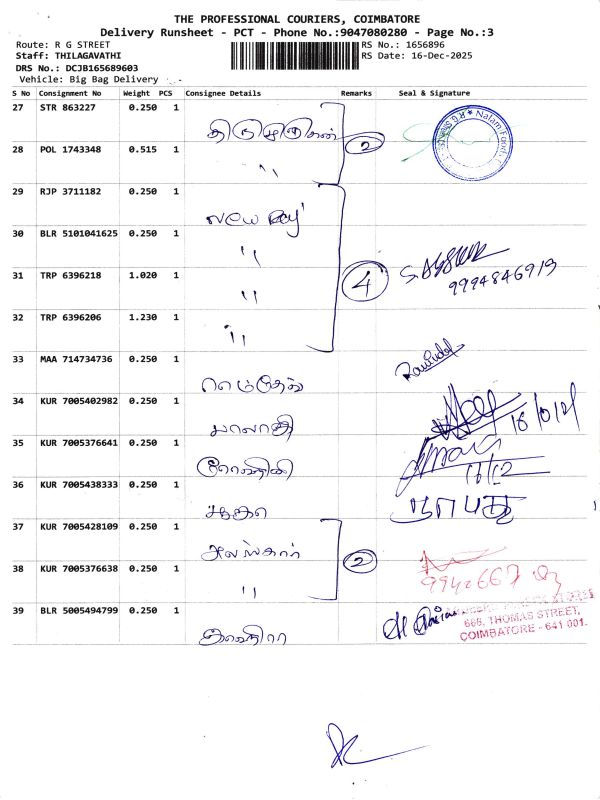 THE PROFESSIONAL COURIERS, COIMBATORE
Delivery Runsheet - PCT - Phone No.:9047080280 - Page No.:3
Route: R G STREET
Staff: THILAGAVATHI
DRS No.: DCJB165689603
Vehicle: Big Bag Delivery
RS No.: 1656896
RS Date: 16-Dec-2025
S No Consignment No Weight PCS Consignee Details Remarks Seal & Signature
27 STR 863227 0.250 1
திருமுருகன் 2
28 POL 1743348 0.515 1
"
29 RJP 3711182 0.250 1
30 BLR 5101041625 0.250 1
"
31 TRP 6396218 1.020 1 4
" 9994846919
32 TRP 6396206 1.230 1
"
33 MAA 714734736 0.250 1
34 KUR 7005402982 0.250 1
பாலாஜி
35 KUR 7005376641 0.250 1
16/12
36 KUR 7005438333 0.250 1
37 KUR 7005428109 0.250 1
அலங்கார் 2
38 KUR 7005376638 0.250 1
"
39 BLR 5005494799 0.250 1
668, THOMAS STREET,
COIMBATORE - 641 001.